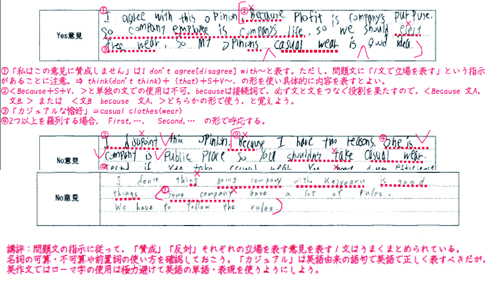 Yes意見
I agree with this opinion, because Profit is company's purpose.
So company employee is company's life. so we should
wear. so my opinions, casual wear is good idea.
①「私はこの意見に賛成しません」はI don't agree[disagree] with～と表す。ただし、問題文に「1文で立場を表す」という指示
があることに注意。⇒ think(don't think)＋(that)＋S＋V～. の形を使い具体的に内容を表すとよい。
②＜Because＋S＋V. ＞と単独の文での使用は不可。becauseは接続詞で、必ず文と文をつなぐ役割を果たすので、＜Because 文A,
文B.＞ または ＜文B because 文A. ＞どちらかの形で使う、と覚えよう。
③「カジュアルな恰好」＝casual clothes(wear)
④2つ以上を羅列する場合、 First,…. Second,…. の形で呼応する。
No意見
I this opinion. Because I have two reasons. One is
company is Public Place so you shouldn't take casual wear.
No意見
I don't think going company with is good
things. Some company have a lot of rules.
We have to follow the rules.
講評：問題文の指示に従って、「賛成」「反対」それぞれの立場を表す意見を表す1文はうまくまとめられている。
名詞の可算・不可算や前置詞の使い方を確認しておこう。「カジュアル」は英語由来の語句で英語で正しく表すべきだが、
英作文ではローマ字の使用は極力避けて英語の単語・表現を使うようにしよう。